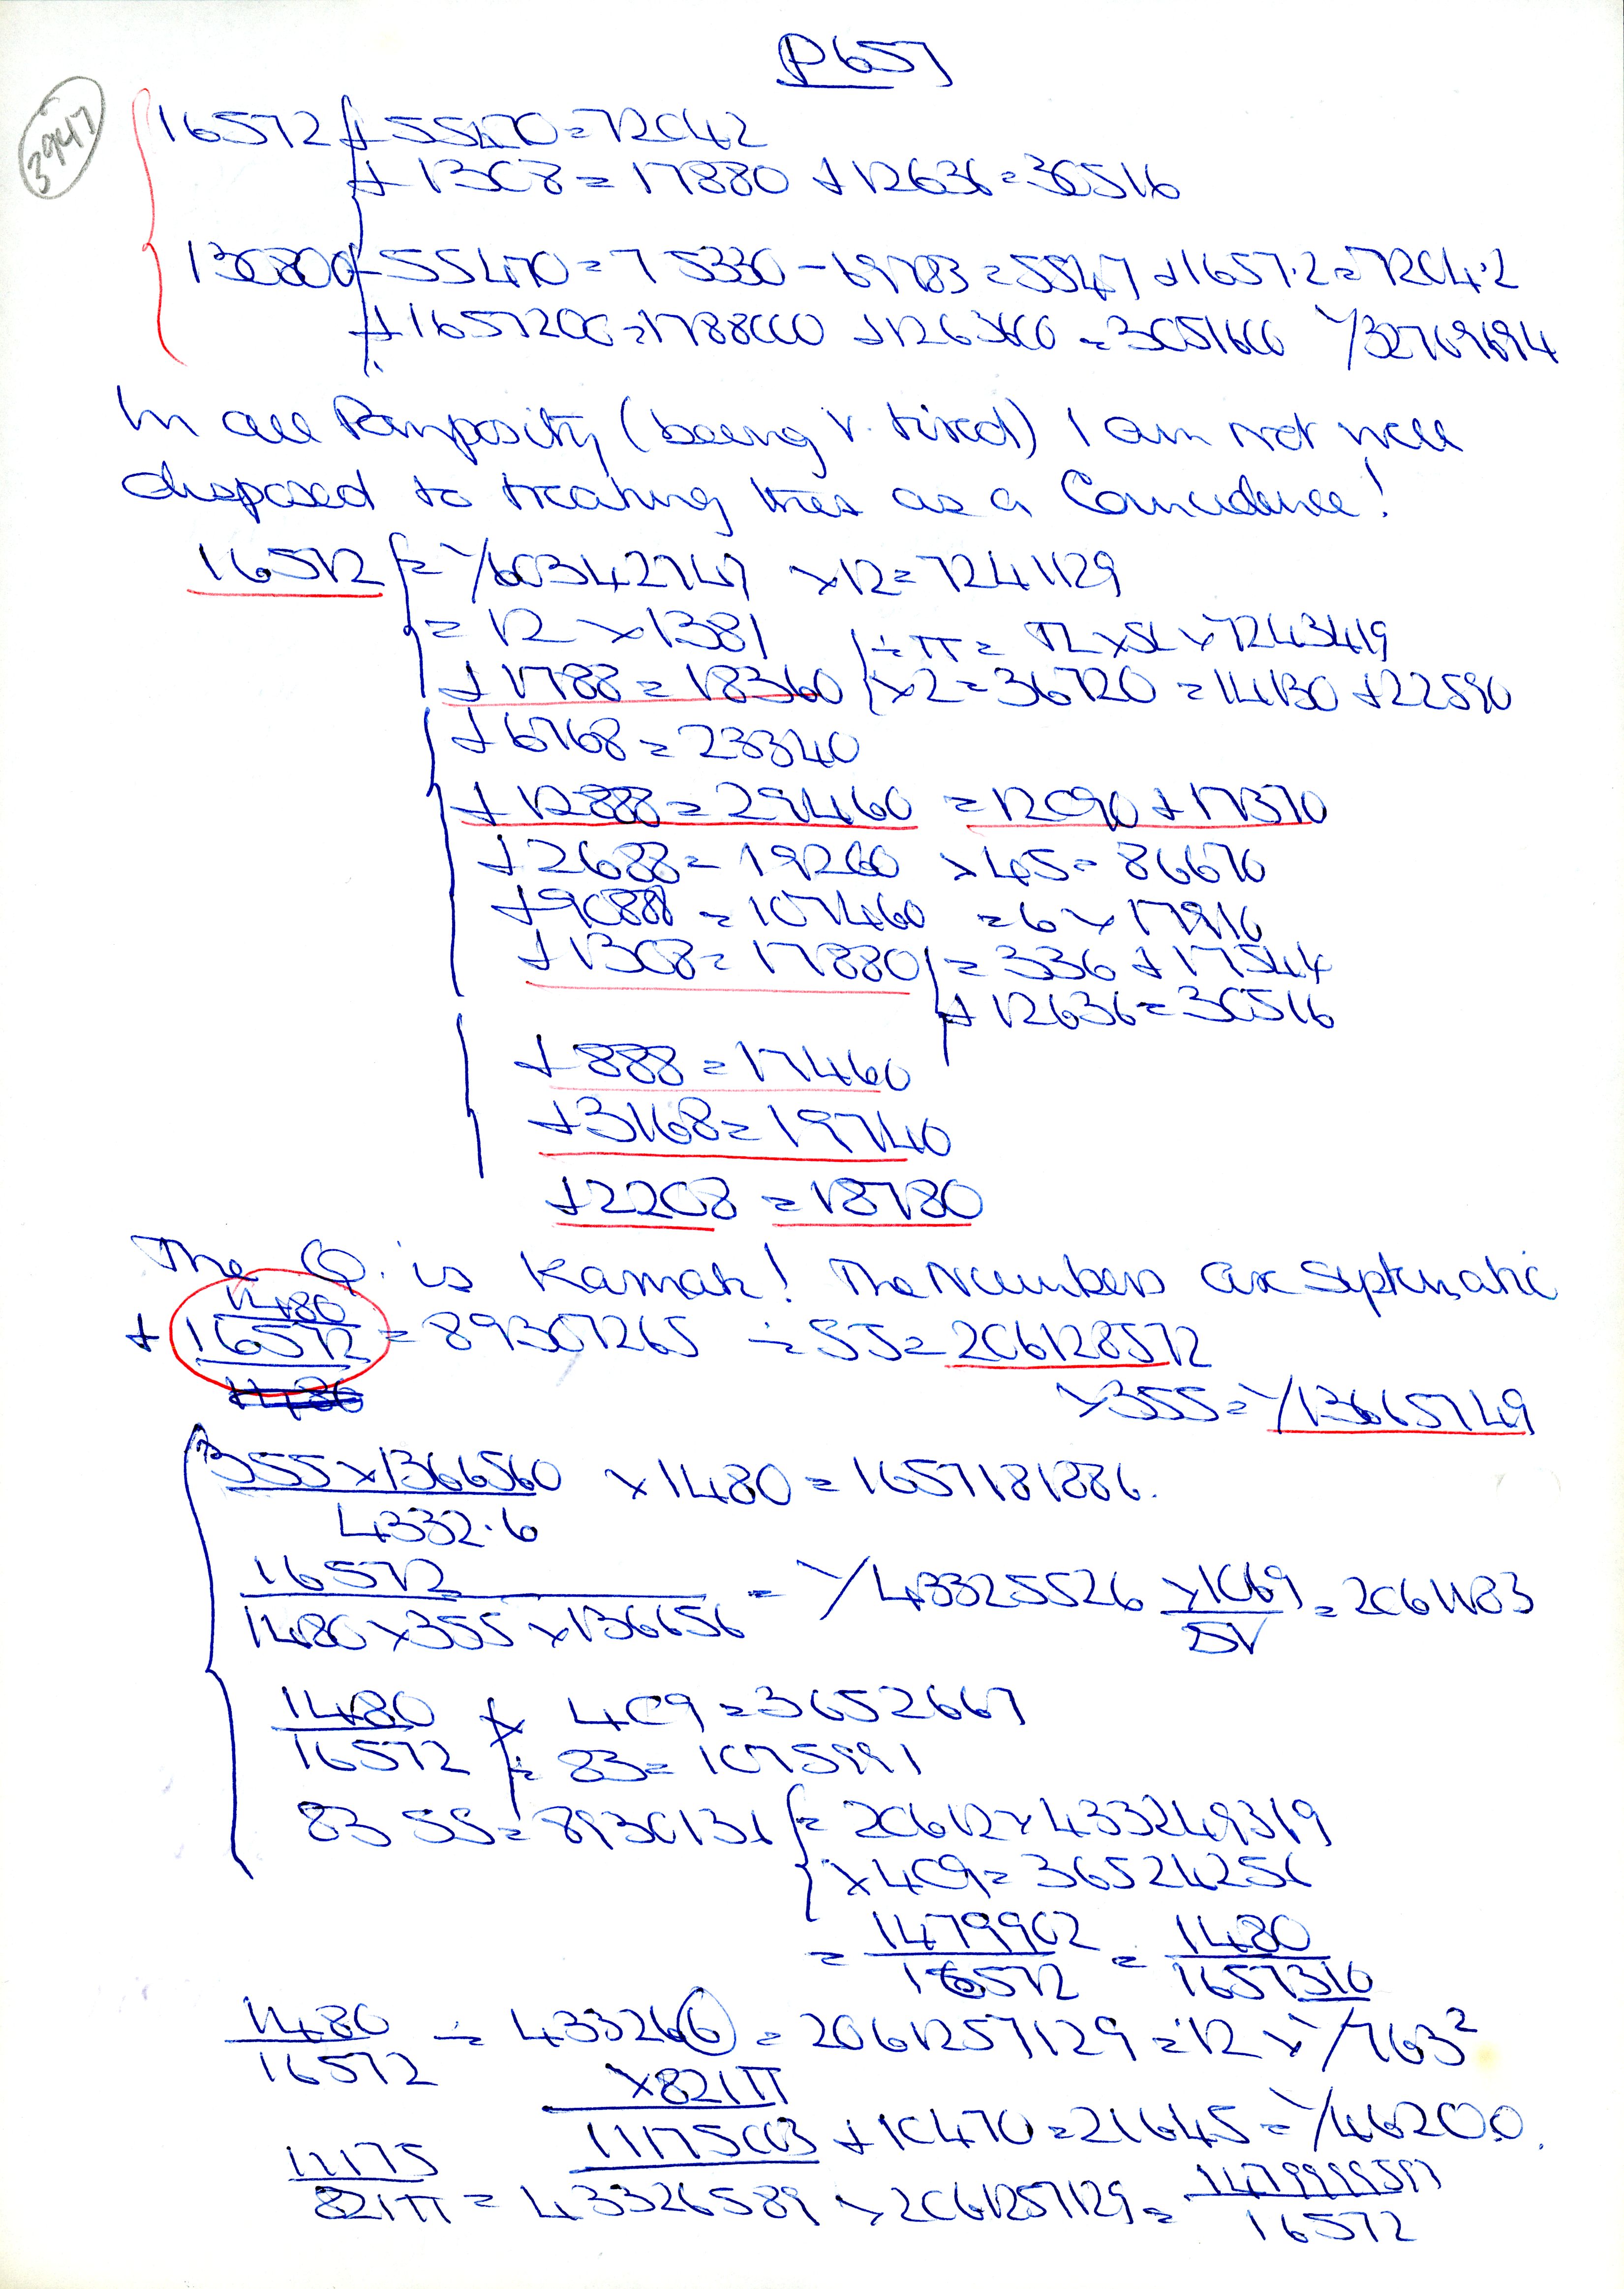 P657
3947
16572 + 55470 = 72042
+ 1308 = 17880 + 12636 = 30516
130800 - 55470 = 75330 - 69783 = 5547 + 1657.2 = 7204.2
+ 1657200 = 1788000 + 1263600 = 3051600 1/32769694
In all Pomposity (being V. tired) I am not well
disposed to treating this as a Coincidence!
16572 = 1/60342747 × 12 = 7241129
= 12 × 1381 ÷ π = 72 × 52 × 7243419
+ 1788 = 18360 × 2 = 36720 = 14130 + 22590
+ 6768 = 23340
+ 12888 = 29460 = 12090 + 17370
+ 2688 = 19260 × 45 = 86670
+ 90888 = 107460 = 6 × 17910
+ 1308 = 17880 = 336 + 17544
+ 12636 = 30516
+ 888 = 17460
+ 3168 = 19740
+ 2208 = 18780
The Q. is Karnak! The Numbers are Systematic
+ 1480
16572 = 89307265 ÷ 55 = 206128572
× 355 = 1/13665749
355 × 1366560 × 1480 = 1657181886.
4332.6
16572 = 1/43325526 × 1069 = 2061183
1480 × 355 × 136656
1480 × 409 = 3652667
16572 ÷ 83 = 1075991
83 55 = 8930131 = 20612 × 433249319
× 409 = 36524256
= 1479902 = 1480
16572 1657310
1480 ÷ 433266 = 2061257129 = 12 × 1/763²
16572 × 821π
11175003 + 10470 = 21645 = 1/46200.
11175
821π = 43326589 × 2061257129 = 1479999597
16572